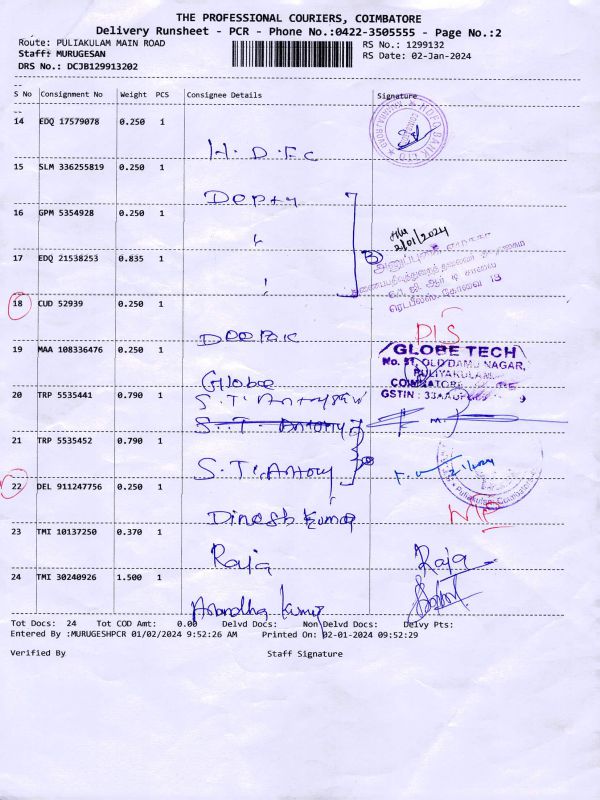 THE PROFESSIONAL COURIERS, COIMBATORE
Delivery Runsheet - PCR - Phone No.:0422-3505555 - Page No.:2
Route: PULIAKULAM MAIN ROAD
RS No.: 1299132
Staff: MURUGESAN
RS Date: 02-Jan-2024
DRS No.: DCJB129913202
S No Consignment No Weight PCS Consignee Details Signature
14 EDQ 17579078 0.250 1
H.D.F.C
15 SLM 336255819 0.250 1
16 GPM 5354928 0.250 1
2/01/2024
17 EDQ 21538253 0.835 1
18 CUD 52939 0.250 1
Deepak
D/S
19 MAA 108336476 0.250 1
GLOBE TECH
No. 51, OLD DAMU NAGAR,
PULIYAKULAM,
COIMBATORE
GSTIN : 33AADF
Globe
20 TRP 5535441 0.790 1
S.T. Antony
S.T. Antony
21 TRP 5535452 0.790 1
S.T. Antony
22 DEL 911247756 0.250 1
Dinesh Kumar
23 TMI 10137250 0.370 1
Raja Raja
24 TMI 30240926 1.500 1
Anandha Kumar
Tot Docs: 24 Tot COD Amt: 0.00 Delvd Docs: Non Delvd Docs: Delvy Pts:
Entered By :MURUGESHPCR 01/02/2024 9:52:26 AM Printed On: 02-01-2024 09:52:29
Verified By Staff Signature